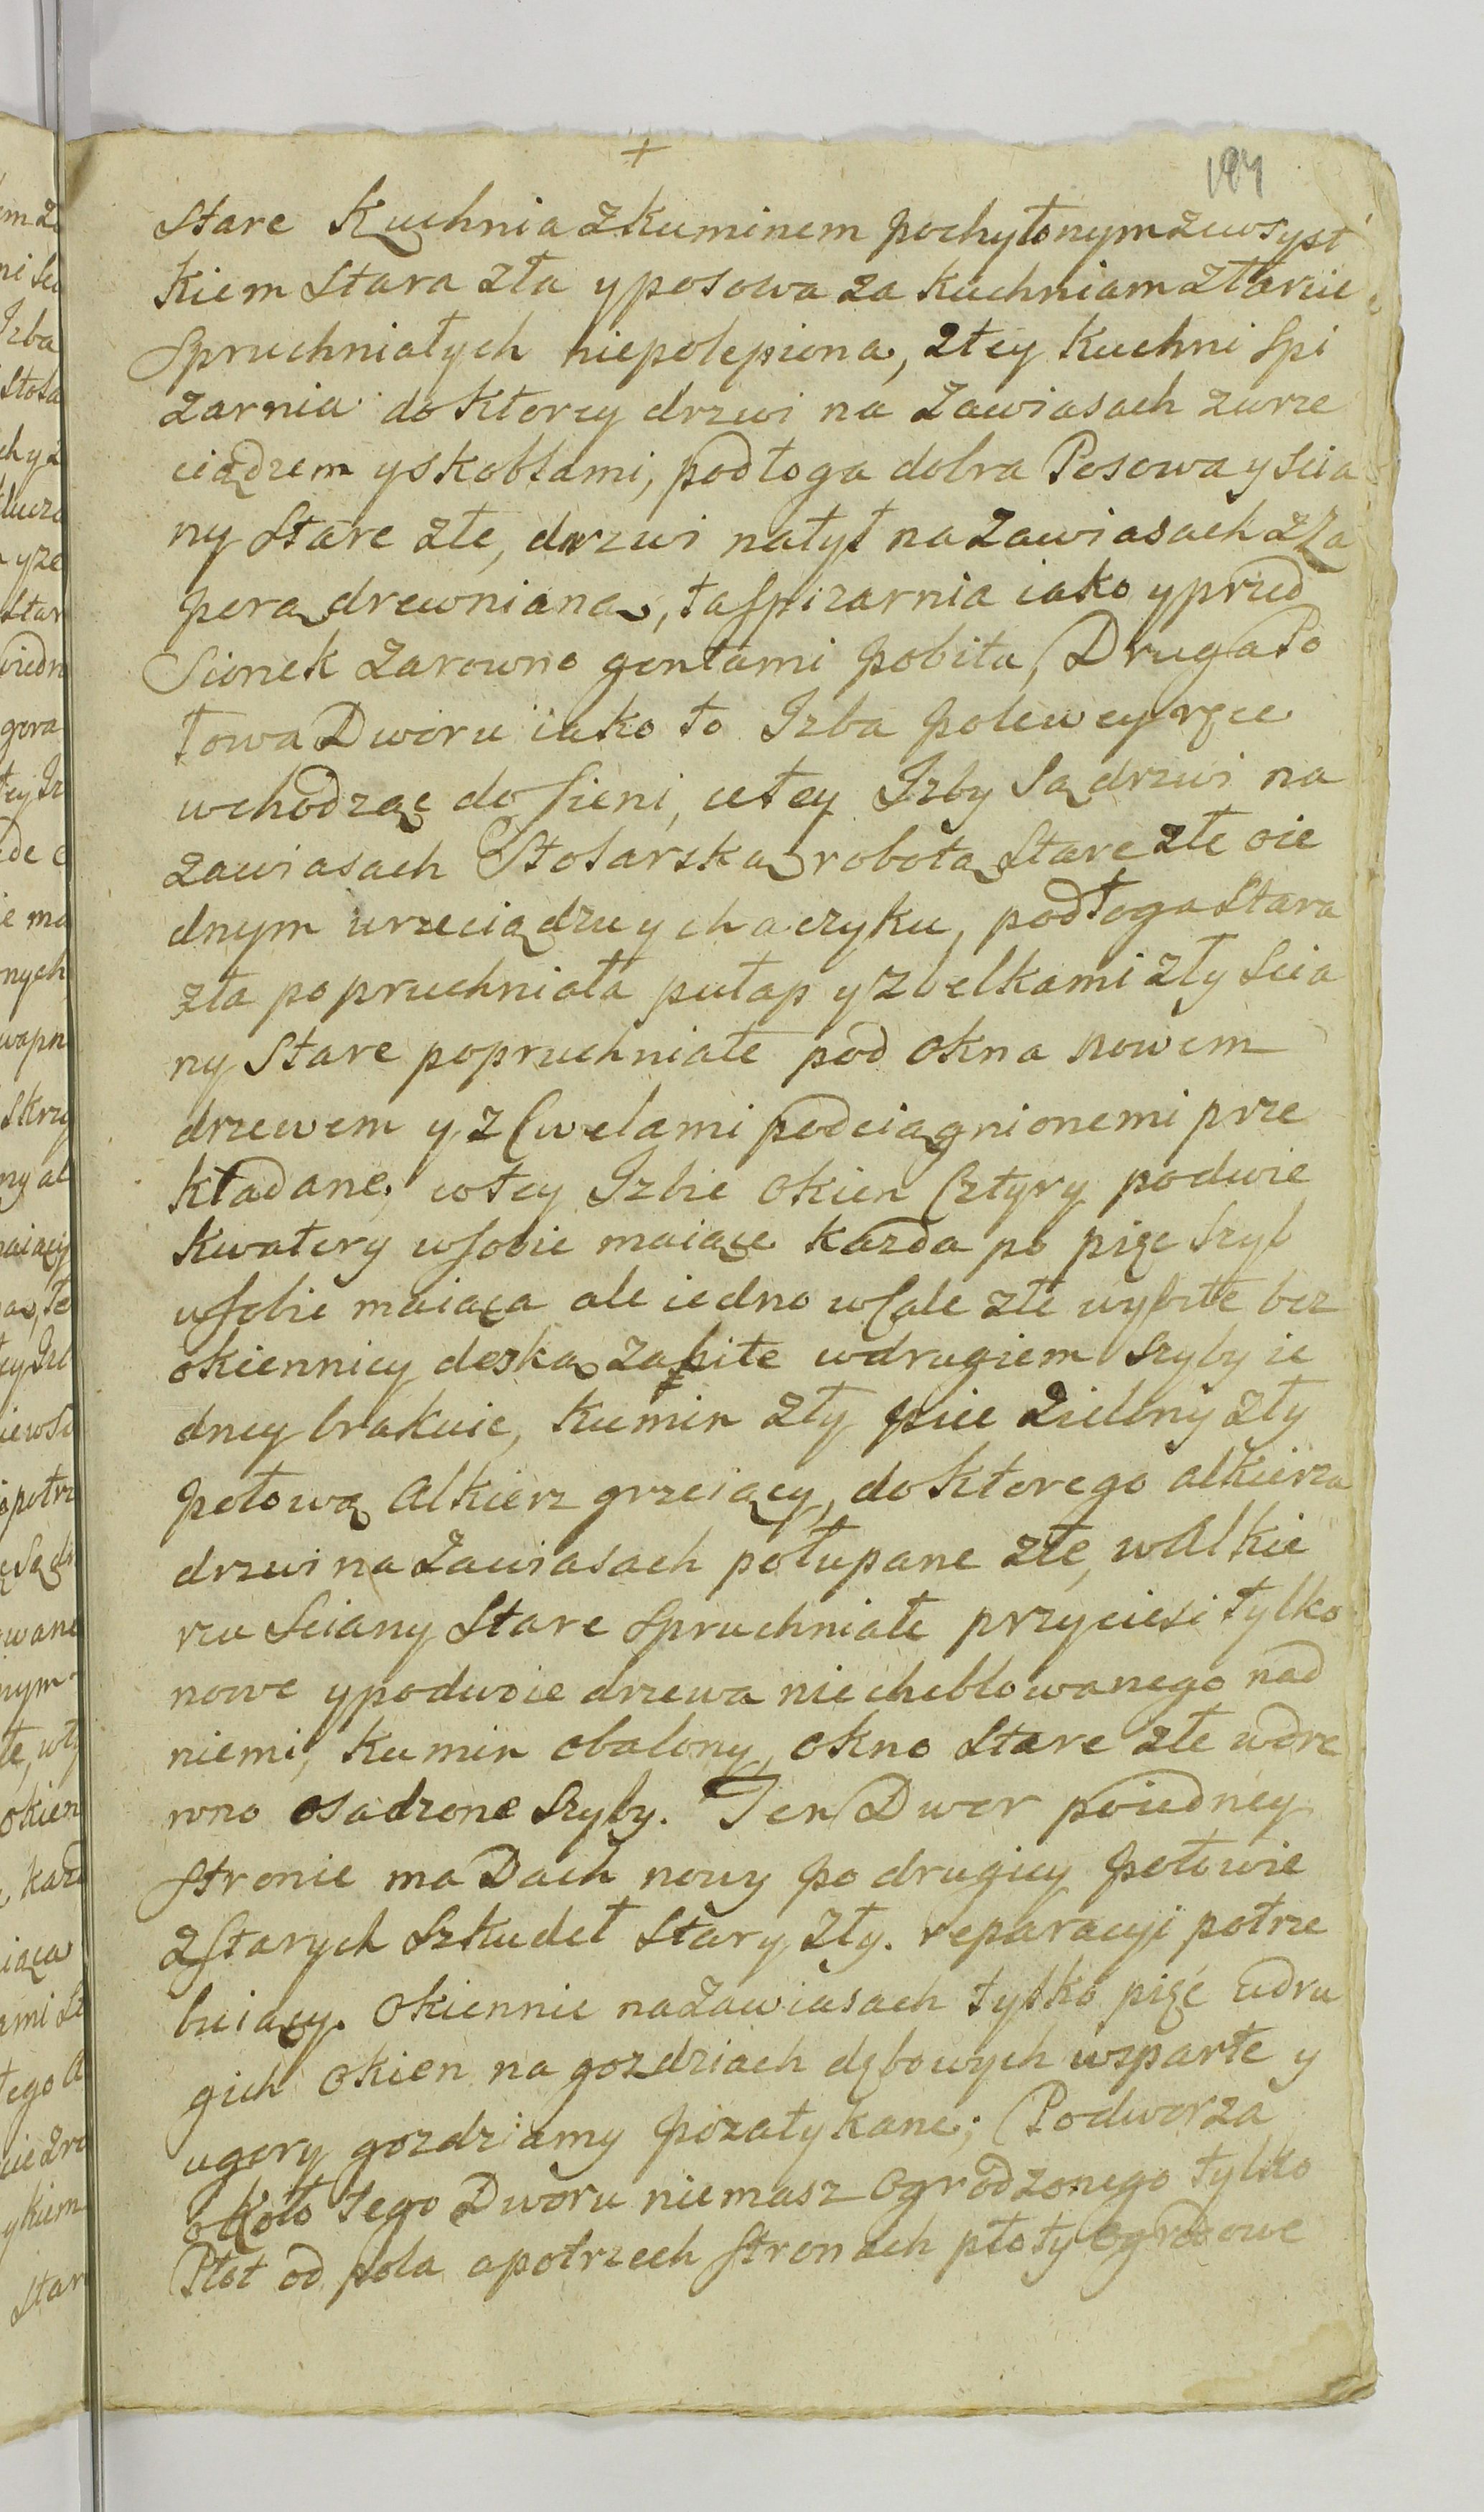 194
Stare Kuchnia z kuminem pochyłonym zewsyst
kiem Stara zła y posowa za kuchniam z Tarcic
Spruchniałych niepolepiona, z tey Kuchni Spi
zarnia do ktorey drzwi na zawiasach z wrze
ciądzem y skoblami, podłoga dobra Posowa y Scia
ny Stare złe, drzwi na tył na zawiasach z za
porą drewnianą, ta Spizarnia iako y przed
Sionek zarowno gontami pobita, Druga Po
łowa Dworu iako to Izba po lewey ręce
wchodząc do Sieni, u tey Izby Są drzwi na
zawiasach Stolarską robotą Stare złe o ie
dnym wrzeciądzu y chaczyku, podłoga Stara
zła popruchniała pułap y z belkami zły Scia
ny Stare popruchniałe pod okna nowem
drzewem y z Cwelami podciągnionemi prze
kładane, w tey Izbie okien Cztyry po dwie
kwatery w Sobie maiące każda po pięc Szyb
w Sobie maiąca ale iedno w Cale złe wybite bez
okiennicy deską zabite w drugiem Szyby ie
dney brakuie, Kumin zły piec Zielony zły
połową Alkierz grzeiący, do ktorego alkierza
drzwi na zawiasach połupane złe, w Alkie
rzu Sciany Stare Spruchniałe przyciesi tylko
nowe y po dwoie drzewa niecheblowanego nad
niemi, Kumin obalony, okno Stare złe w dre
wno osadzone Szyby. Ten Dwor po iedney
Stronie ma Dach nowy po drugiey połowie
z Starych Szkudeł Stary zły. reparacyi potrze
buiący. Okiennic na zawiasach tylko pięć u dru
gich okien na gozdziach dębowych wsparte y
u gory gozdziamy pozatykane; Podworza
około tego Dworu niemasz Ogrodzonego tylko
Płot od pola a po trzech Stronach płoty Ogrodowe